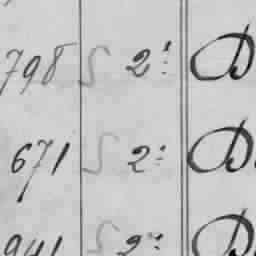 798 S 2: D
671 S 2: D.
941 S 2: D